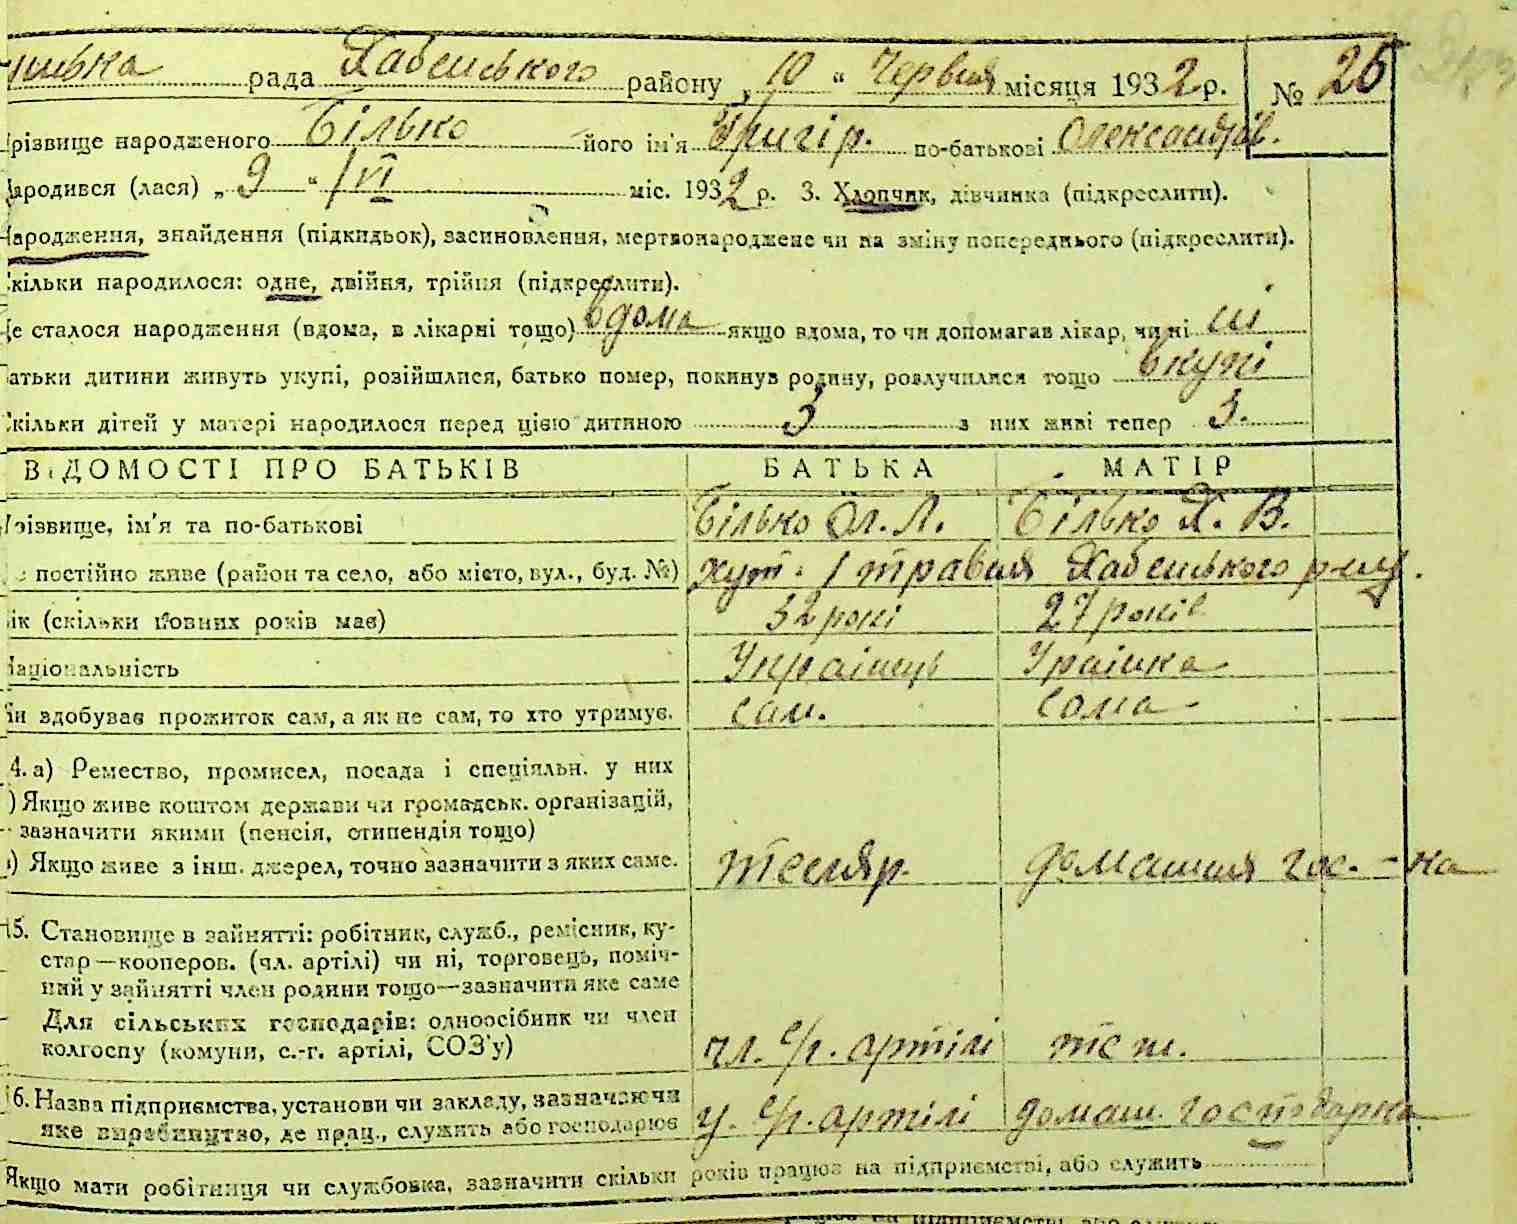 рада Хабенського району „ 10 “ Червня місяця 1932 р. № 26
різвище народженого Білько його ім'я Григір. по-батькові Олександрів.
ародився (лася) „ 9 “ / VI міс. 1932 р. 3. Хлопчик, дівчинка (підкреслити).
Народження, знайдення (підкидьок), засиновлення, мертвонароджене чи на зміну попереднього (підкреслити).
кільки народилося: одне, двійня, трійня (підкреслити).
е сталося народження (вдома, в лікарні тощо) вдома якщо вдома, то чи допомагав лікар, чи ні ні
атьки дитини живуть укупі, розійшлися, батько помер, покинув родину, розлучилися тощо вкупі
кільки дітей у матері народилося перед цією дитиною 3 з них живі тепер 3.
ВІДОМОСТІ ПРО БАТЬКІВ БАТЬКА МАТІР
різвище, ім'я та по-батькові Білько Ол. Л. Білько Х. В.
постійно живе (район та село, або місто, вул., буд. №) хут. 1 травня Хабенського р-ну.
ік (скільки повних років має) 32 рокі 27 років
Національність Українець Украінка
Чи здобуває прожиток сам, а як не сам, то хто утримує. сам. сама
4. а) Ремество, промисел, посада і спеціяльн. у них
) Якщо живе коштом держави чи громадськ. організацій,
зазначити якими (пенсія, стипендія тощо)
) Якщо живе з інш. джерел, точно зазначити з яких саме. тесляр. домашня гос. - ка
15. Становище в зайнятті: робітник, служб., ремісник, ку-
стар—кооперов. (чл. артілі) чи ні, торговець, поміч-
ний у зайнятті член родини тощо—зазначити яке саме
Для сільських господарів: одноосібник чи член
колгоспу (комуни, с.-г. артілі, СОЗ'у) чл. с/г. артілі теж.
16. Назва підприємства, установи чи закладу, зазначаючи
яке виробництво, де прац., служить або господарює у. с/г. артілі домаш. господарка
Якщо мати робітниця чи службовка, зазначити скільки років працює на підприємстві, або служить